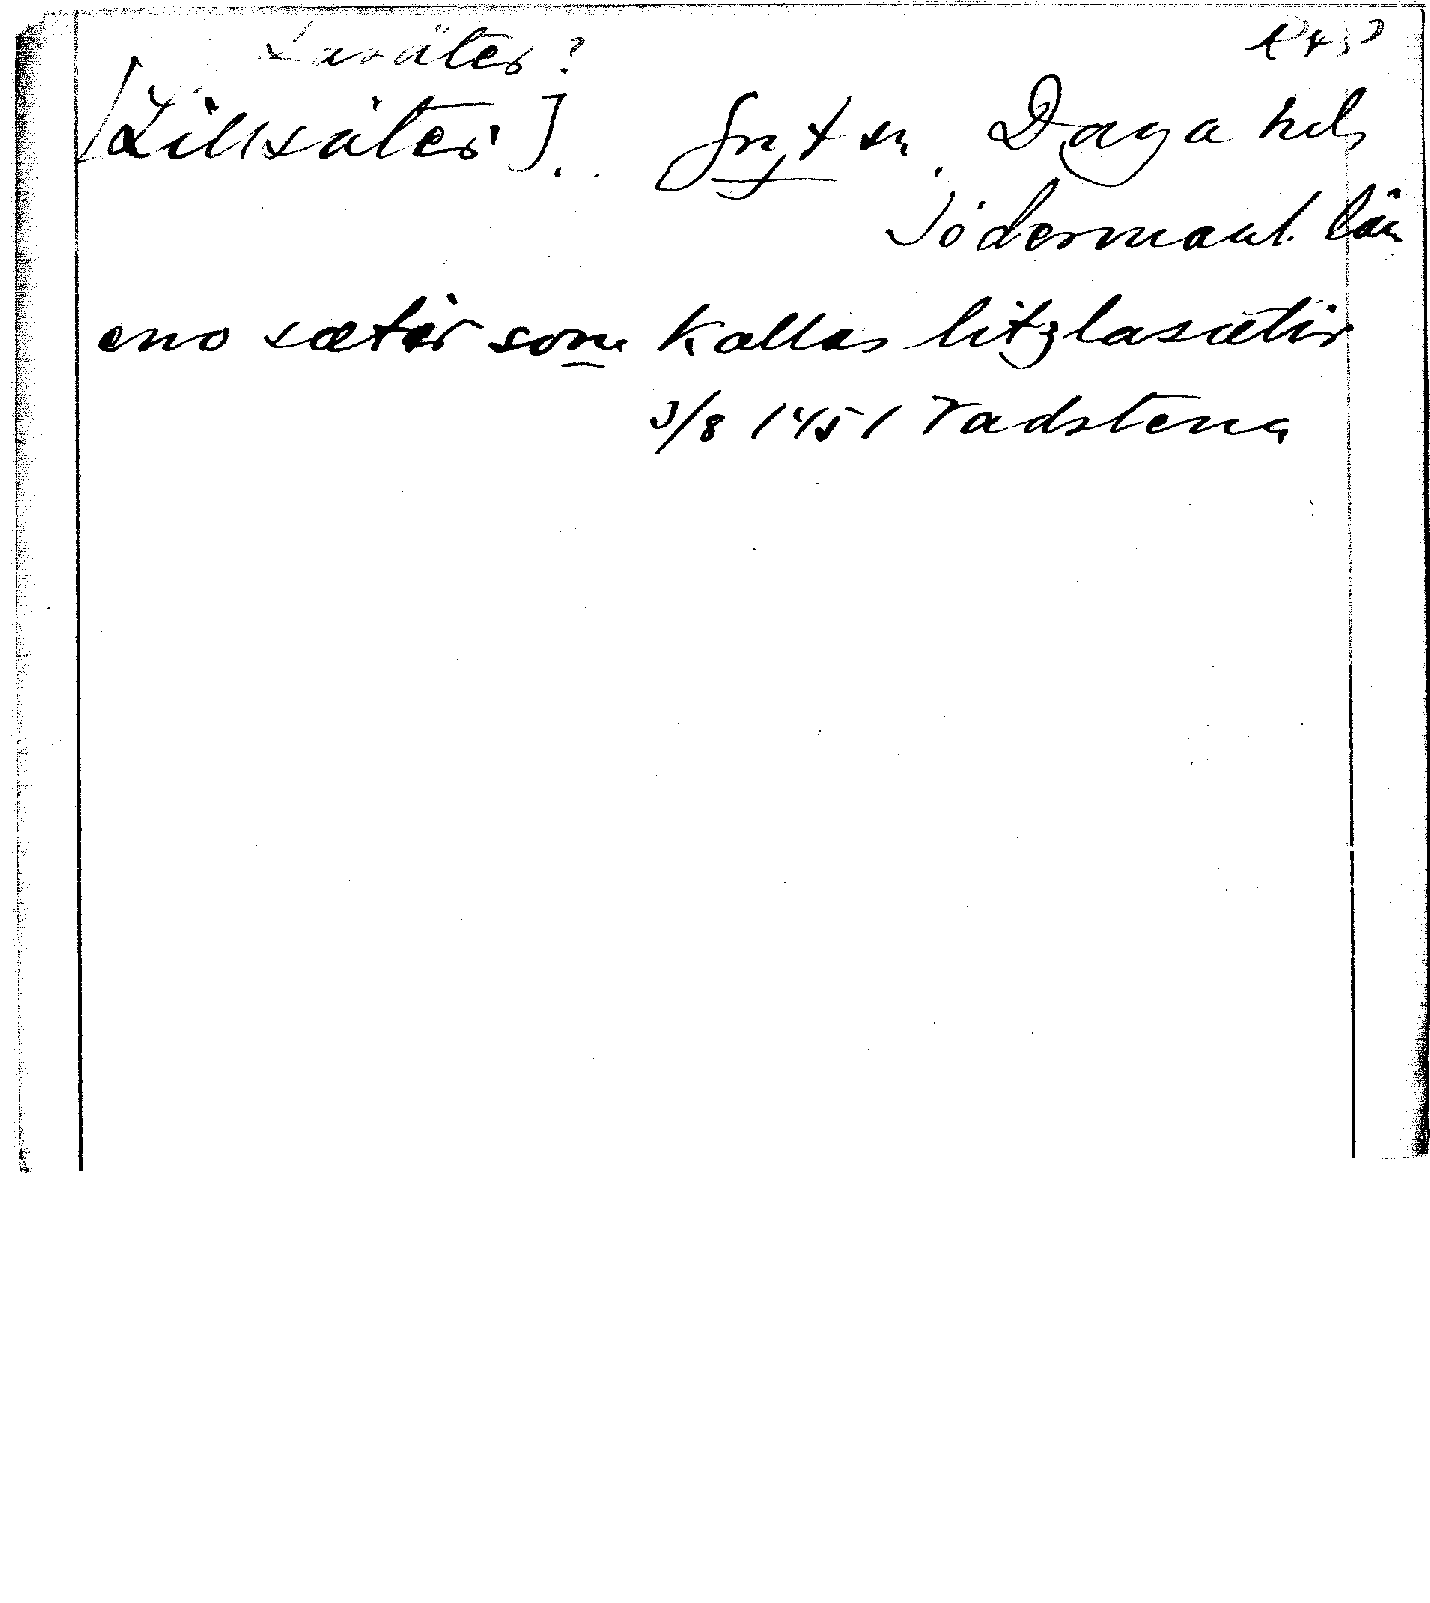 Lasäter?
[Lillsäter]. Gryt sn. Daga hd,
Södermanl. län
eno sæter som kallas litzlasætir
3/8 1451 Vadstena